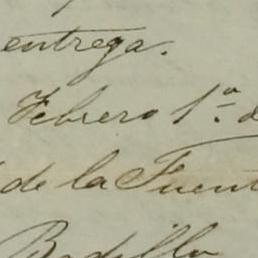 entrega.
Febrero 1º d
de la Fuent
Badillo